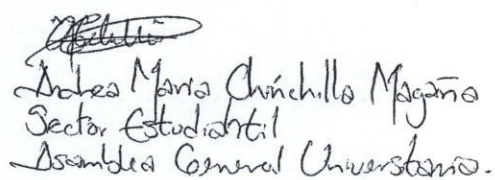 Andrea María Chinchilla Magaña
Sector Estudiantil
Asamblea General Universitaria.